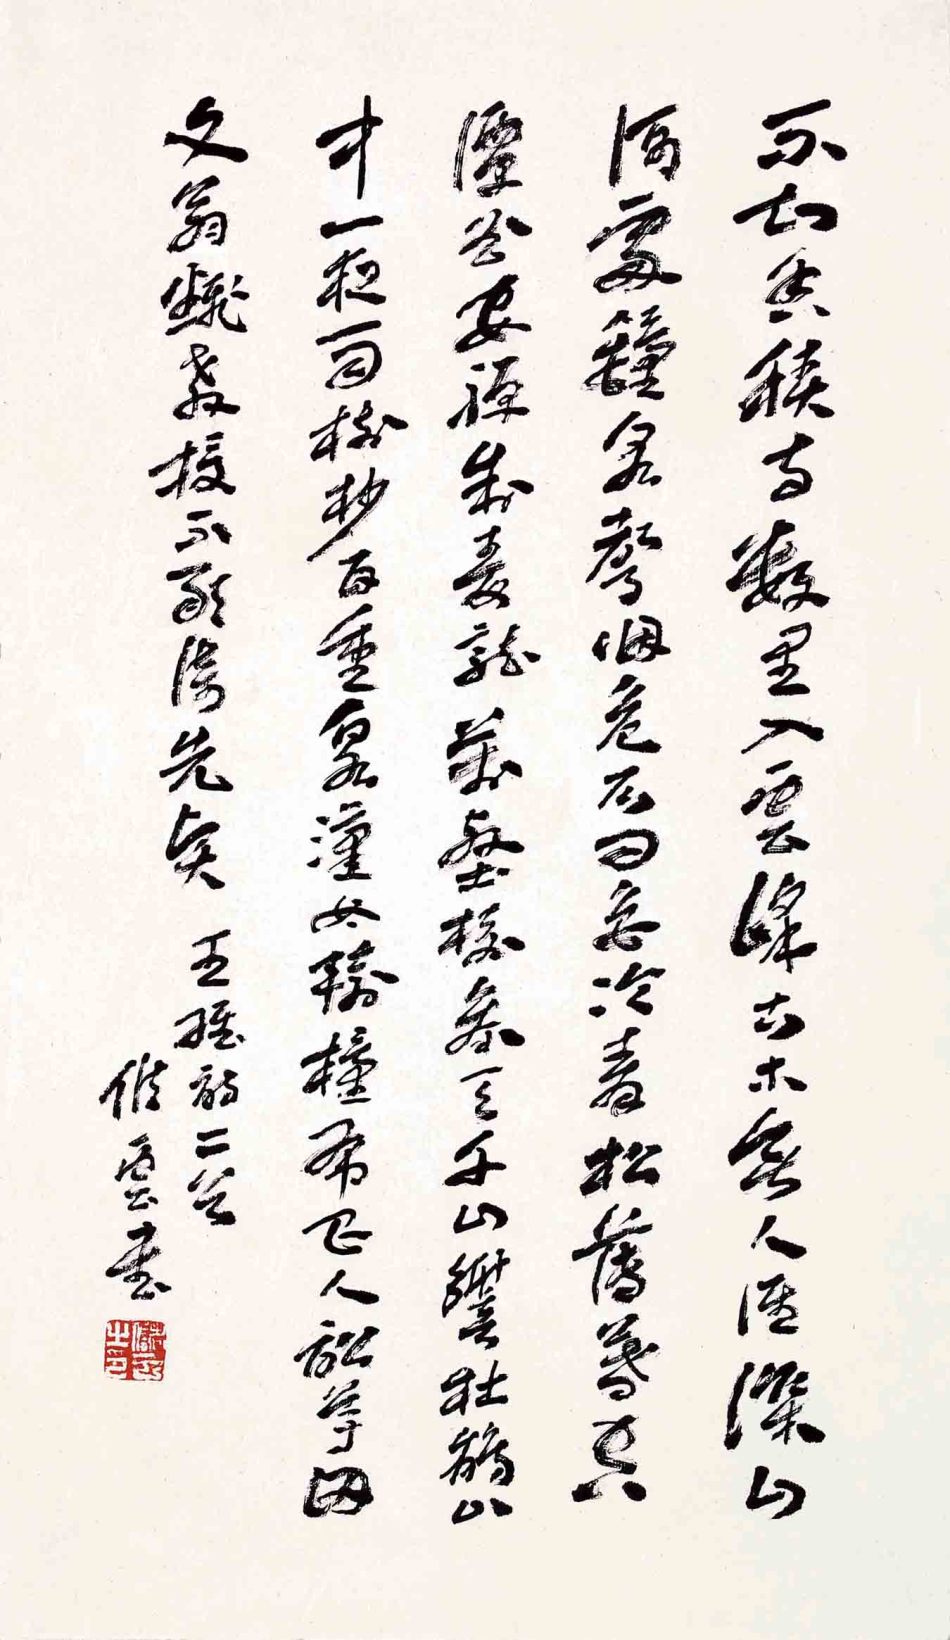 不知香積寺數里入雲峰古木無人徑深山
何處鐘泉聲咽危石日色冷青松薄暮空
潭曲安禪制毒龍萬壑樹參天千山響杜鵑山
中一夜雨樹杪百重泉漢女輸橦布巴人訟芋田
文翁翻教授不敢倚先賢 王維詩二首
雲書